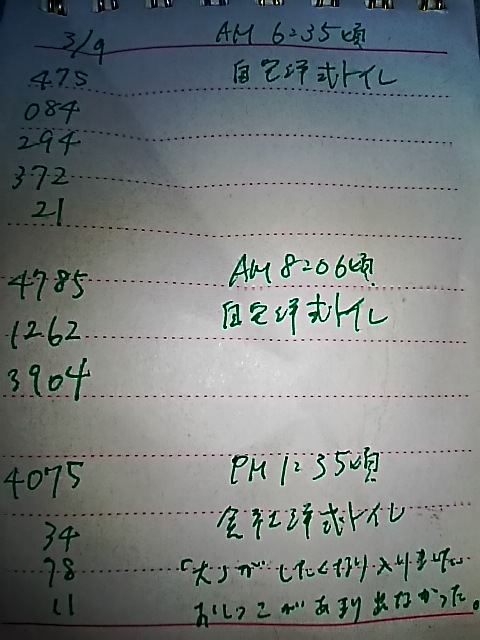 3/9 AM 6:35頃
475 自宅洋式トイレ
084
294
372
21
4785 AM 8:06頃
1262 自宅洋式トイレ
3904
4075 PM 1:35頃
34 会社洋式トイレ
78 「大」がしたくなり入りました
11 おしっこがあまり出なかった。